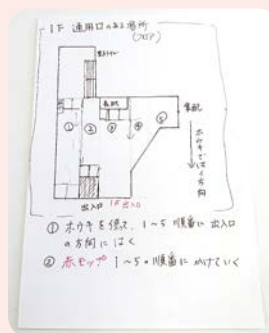 1F 通用口のある場所
(フロア)
① ② ③ ④ ⑤
ホウキではく方向
出入口 1F出入口
① ホウキを使って、1〜5順番に出入口
の方向にはく
② 赤モップ 1〜5の順番にかけていく